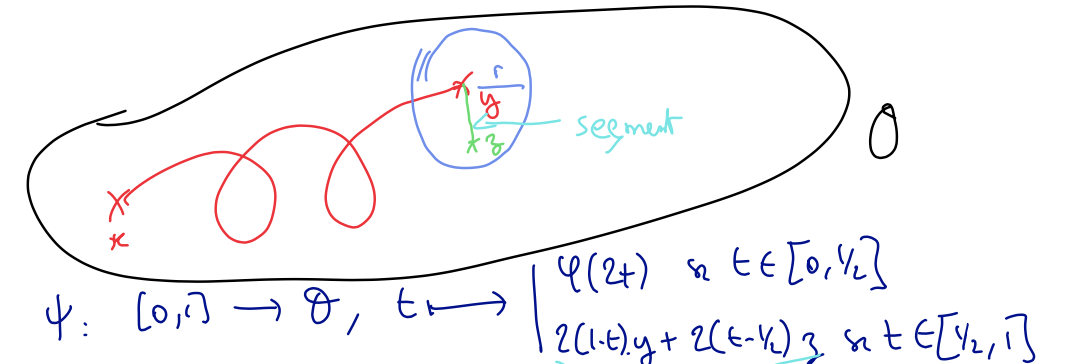 r
y
segment
z
O
x
ψ: [0,1] → O, t ⟼ | φ(2t) si t ∈ [0,1/2]
2(1-t).y + 2(t-1/2) z si t ∈ [1/2, 1]